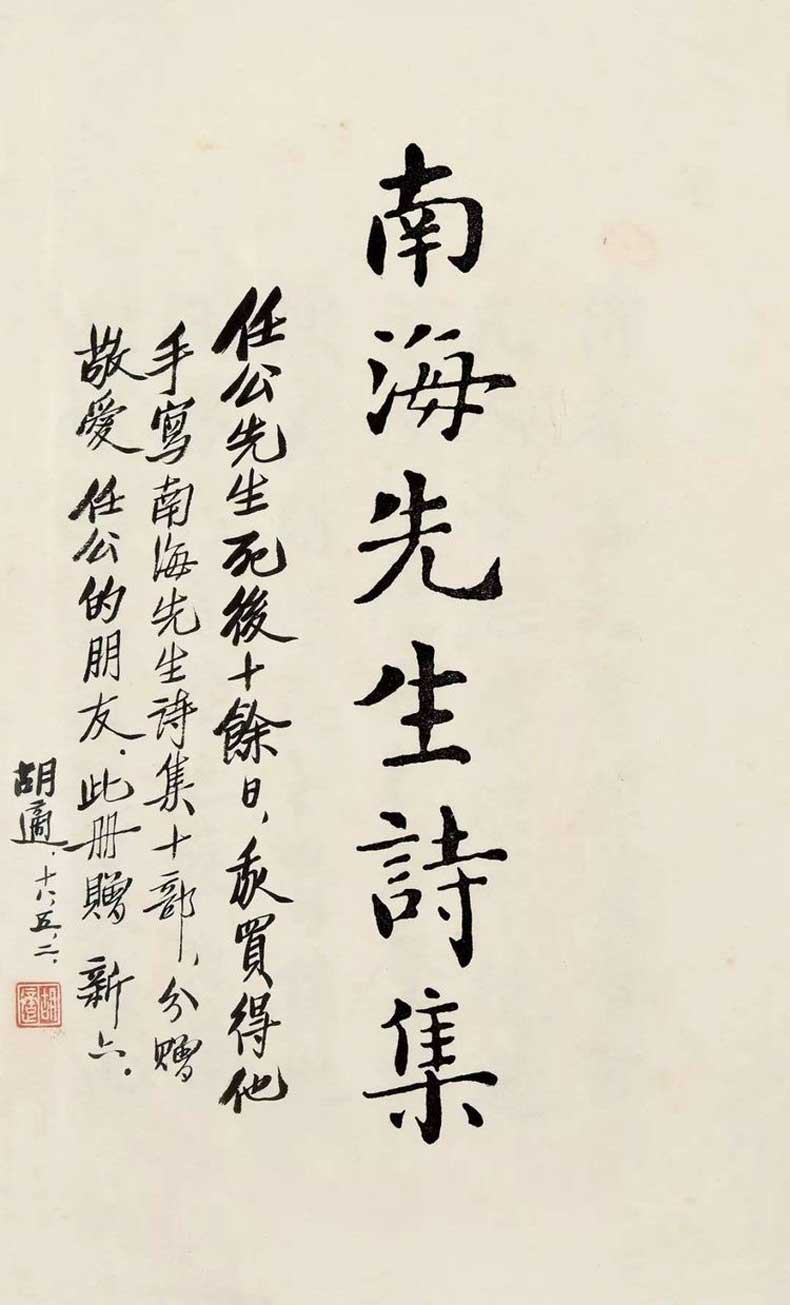 南海先生詩集
任公先生死後十餘日，我買得他
手寫南海先生詩集十部，分贈
敬愛 任公的朋友．此册贈 新六．
胡適．十八，五，二．
胡適